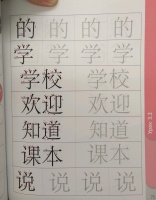 的 的 的 的
学 学 学 学
学校 学校
欢迎 欢迎
知道 知道
课本 课本
说 说 说 说